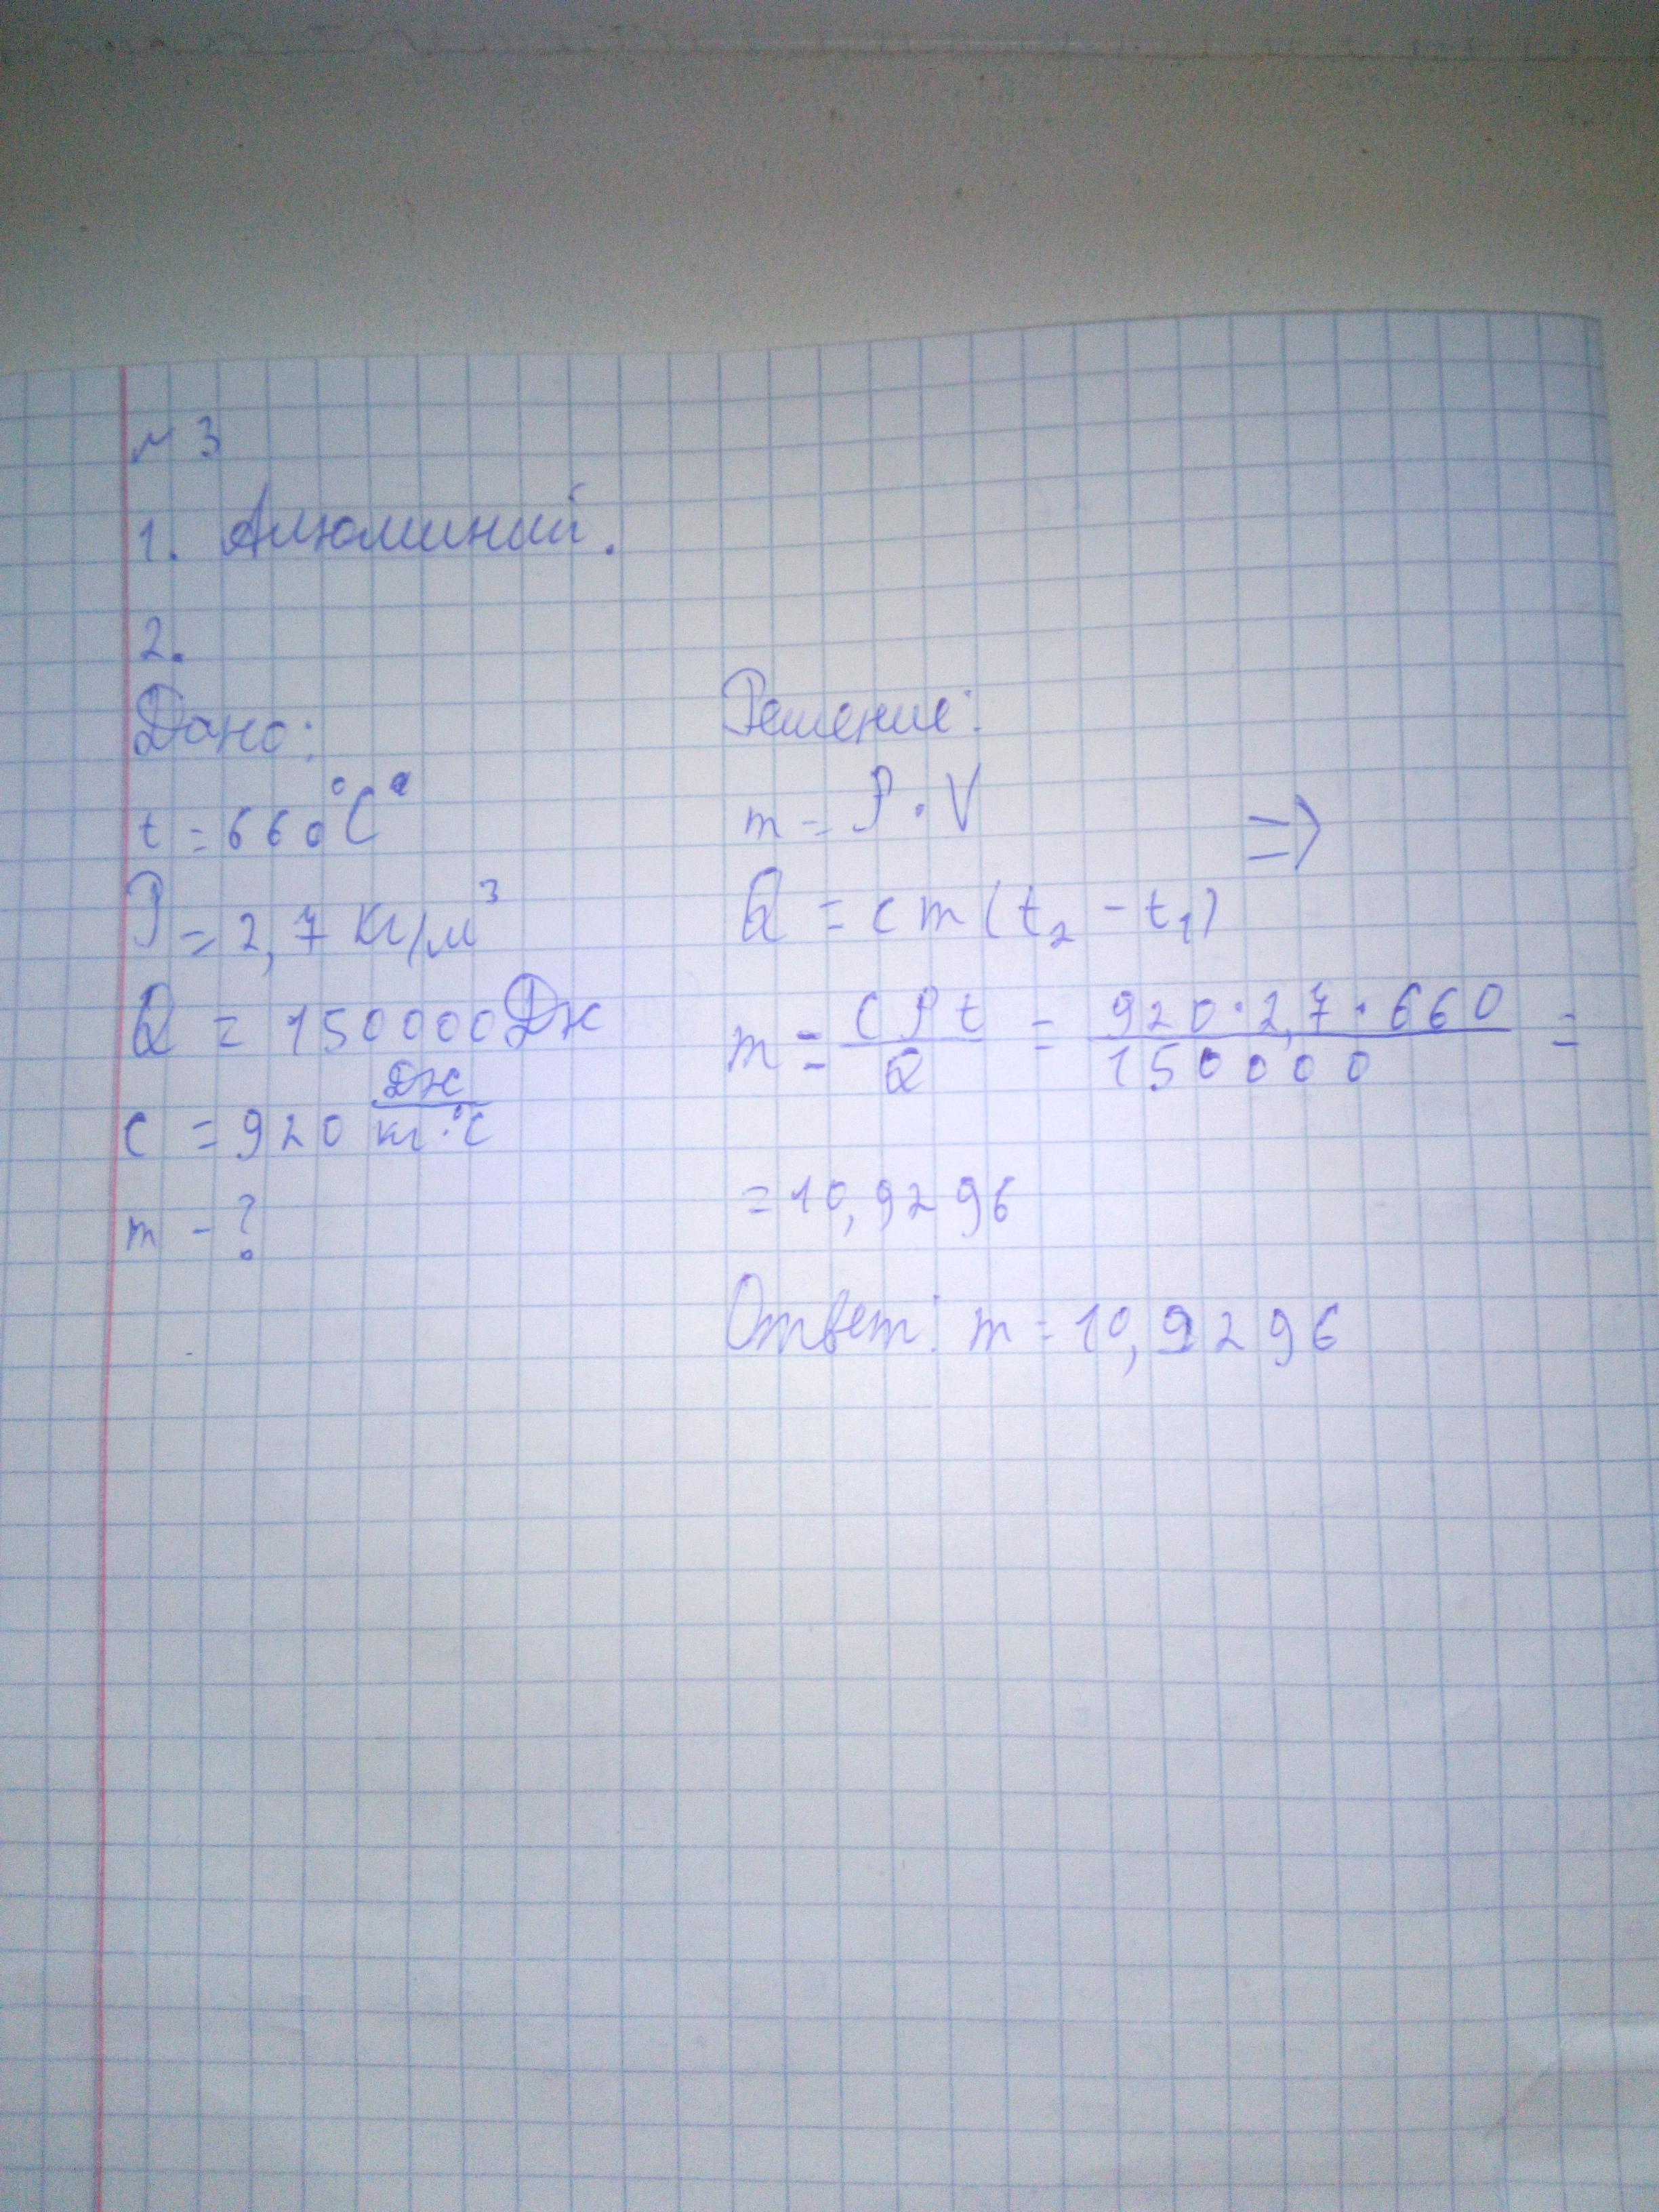 № 3
1. Алюминий.
2.
Дано:
t = 660°C
P = 2,7 кг/м³
Q = 150000 Дж
c = 920 Дж/кг·°C
m - ?
Решение:
m = P · V
=>
Q = cm(t₂ - t₁)
m = cPt/Q = 920·2,7·660/150000 =
= 10,9296
Ответ: m = 10,9296